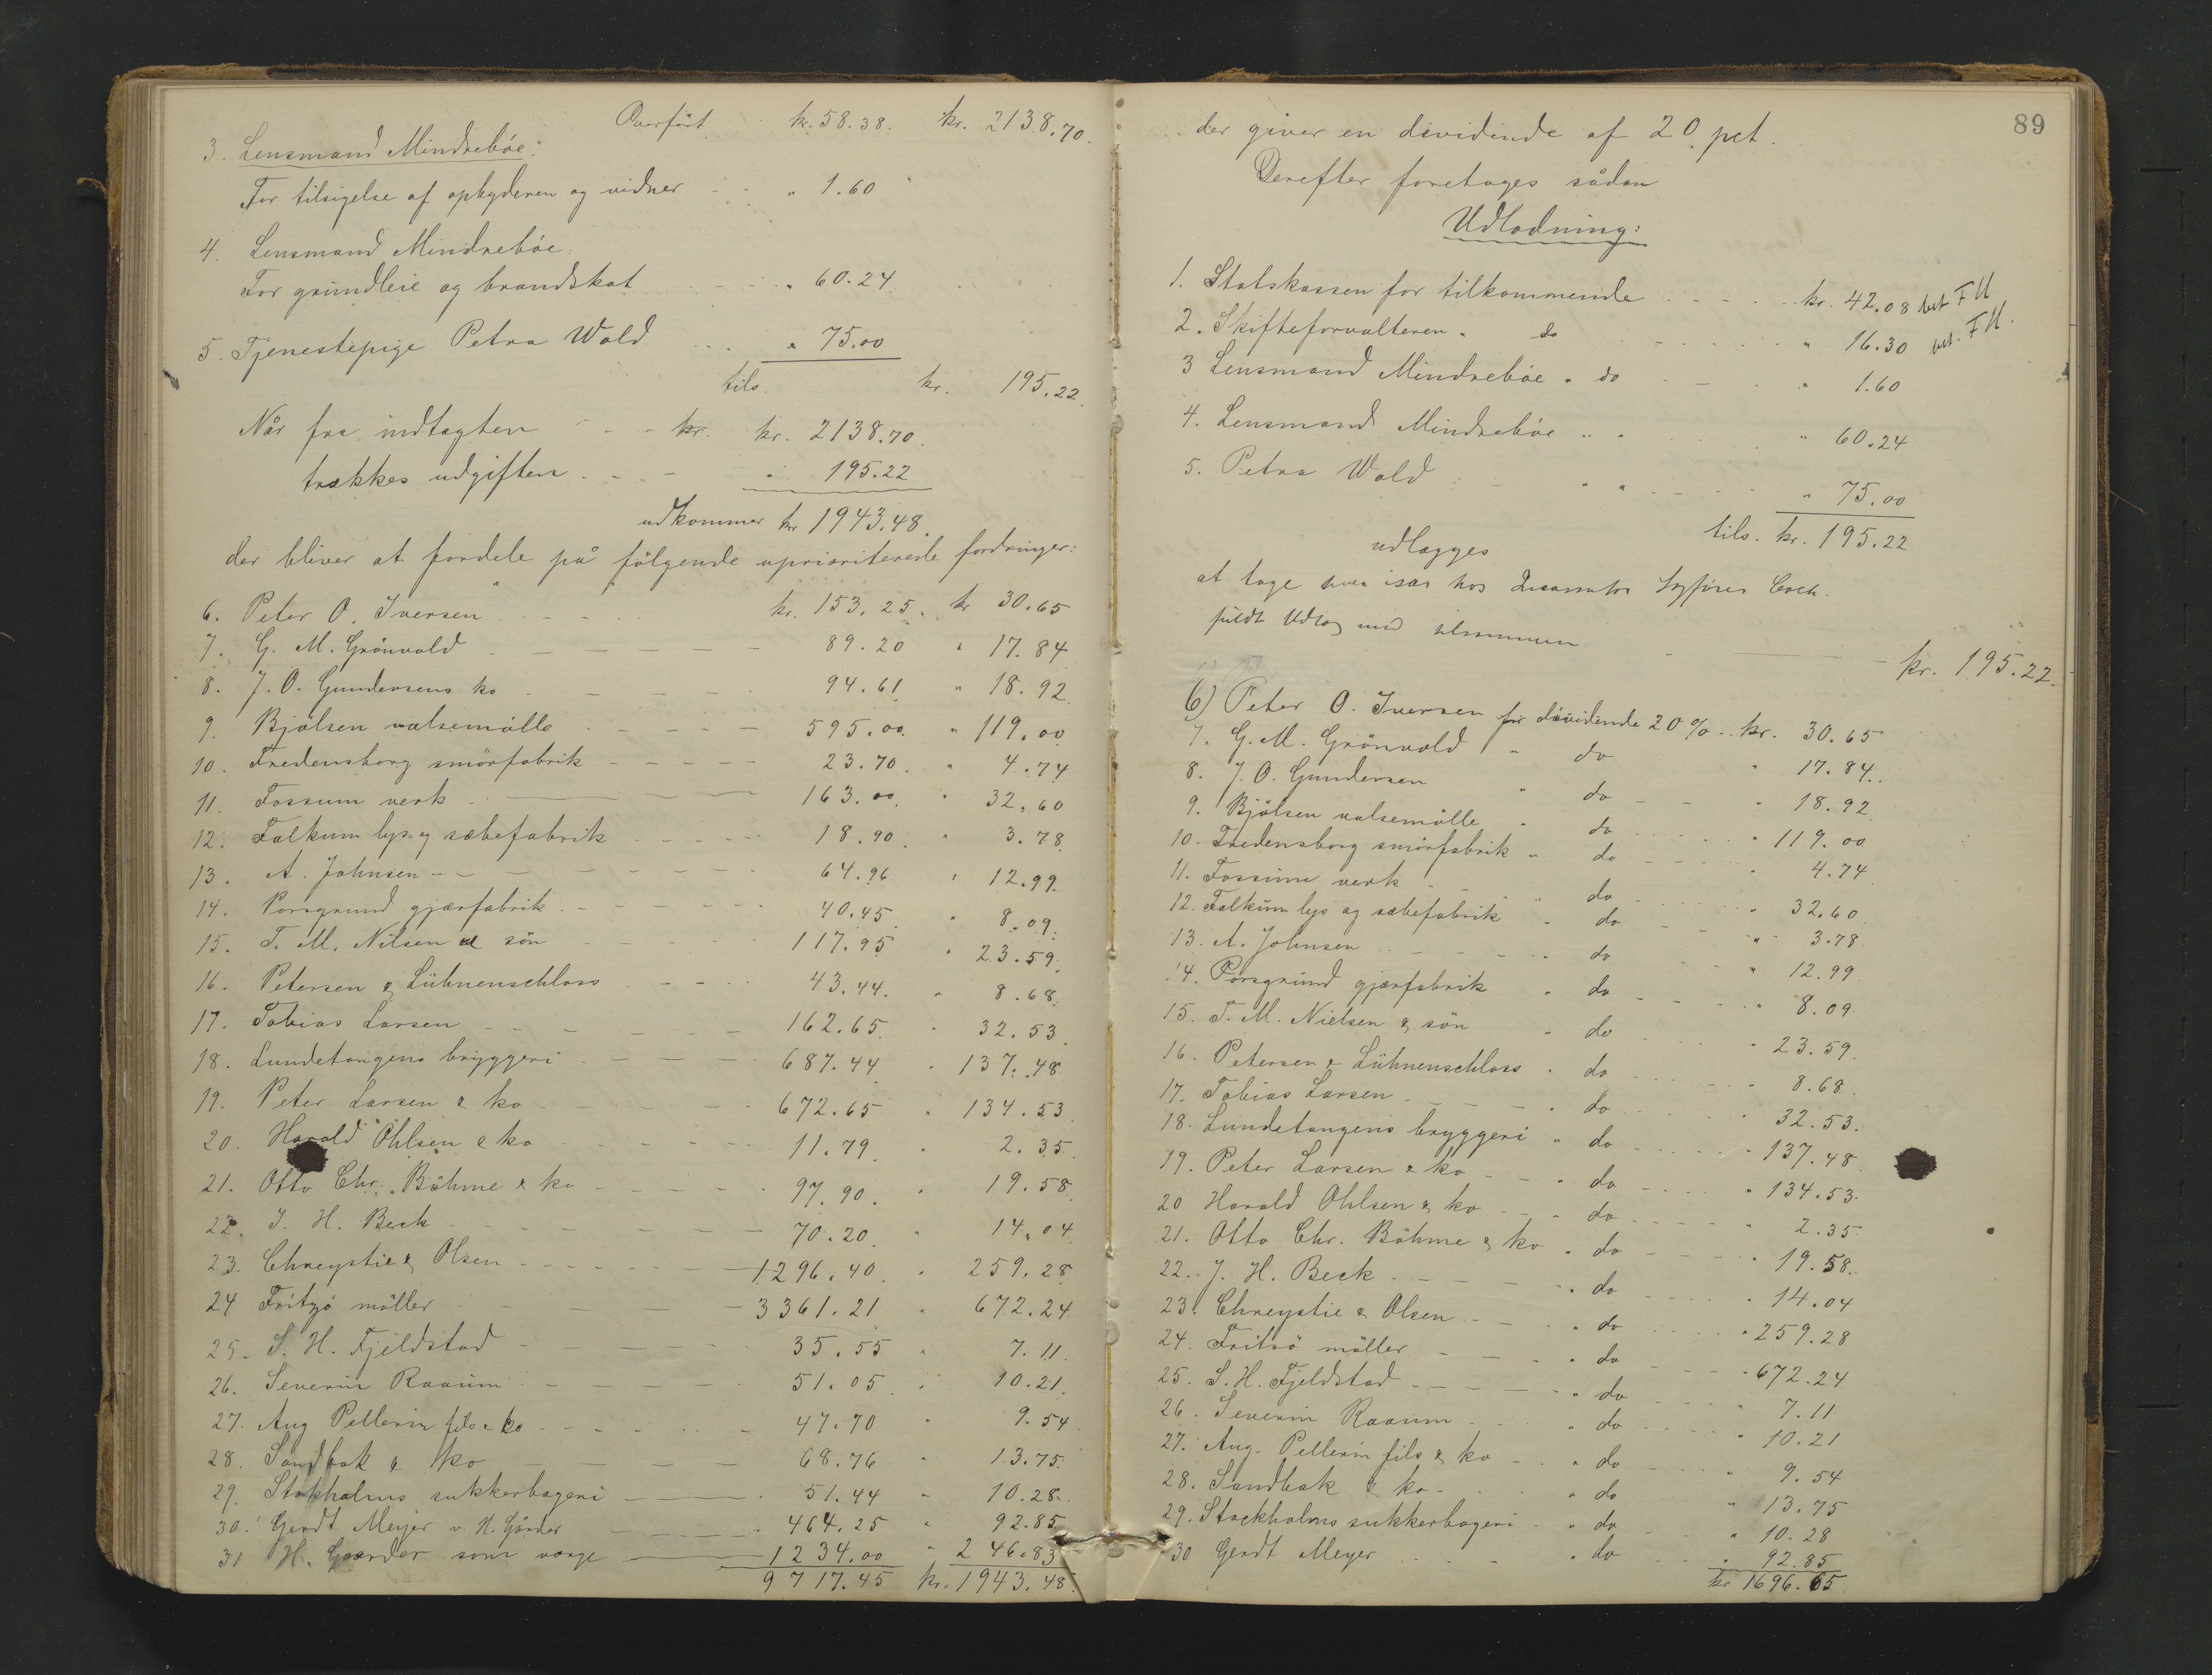 Overført kr. 58.38. kr. 2138.70.
3. Lensmand Mindrebøe:
For tilsigelse af opbyderen og vidner " 1.60
4. Lensmand Mindrebøe
For grundleie og brandskat " 60.24
5. Tjenestepige Petra Wold " 75.00
tils. kr. 195.22.
Når fra indtægten kr. kr. 2138.70.
trækkes udgiften " 195.22
udkommer kr 1943.48.
der bliver at fordele på følgende uprioriterede fordringer:
6. Peter O. Iversen kr. 153.25. kr 30.65
7. G. M. Grönvold 89.20 " 17.84
8. J. O. Gundersens ko 94.61 " 18.92
9. Bjölsen valsemölle 595.00. " 119.00
10. Fredensborg smörfabrik 23.70. " 4.74
11. Fossum verk 163.00. " 32.60
12. Falkum lys og sæbefabrik 18.90. " 3.78
13. A. Johnsen 64.96 " 12.99.
14. Porsgrund gjærfabrik 40.45 " 8.09.
15. T. M. Nilsen & sön 117.95 " 23.59.
16. Petersen & Lühnenschloss 43.44. " 8.68.
17. Tobias Larsen 162.65. " 32.53.
18. Lundetangens bryggeri 687.44 " 137.48
19. Peter Larsen & ko 672.65 " 134.53.
20. Harald Ohlsen & ko 11.79. " 2.35.
21. Otto Chr. Böhme & ko 97.90. " 19.58.
22. J. H. Beck 70.20. " 14.04
23. Chreystie & Olsen 1296.40. " 259.28
24 Fritzö möller 3361.21 " 672.24
25. S. H. Fjeldstad 35.55 " 7.11.
26. Severin Raaum 51.05. " 10.21.
27. Aug Pellerin fils & ko 47.70 " 9.54
28. Sandbak & ko 68.76 " 13.75.
29. Stokholms sukkerbageri 51.44 " 10.28.
30. Gerdt Meyer v. H. Gaarder 464.25 " 92.85
31 H. Gaarder som værge 1234.00 " 246.83
9717.45 kr. 1943.48.
89
der giver en dividende af 20 pct.
Derefter foretages sådan
Udlodning:
1. Statskassen for tilkommende kr. 42.08 bet FH
2. Skifteforvalteren " do " 16.30 bet. FH.
3 Lensmand Mindrebøe " do " 1.60
4. Lensmand Mindrebøe " " " 60.24
5. Petra Wold " " " 75.00
tils. kr. 195.22
udlægges
at tage hver især hos Sagfører Coch.
fuldt Udlæg med tilsammen
kr. 195.22.
6) Peter O. Iversen for dividende 20% kr. 30.65
7. G. M. Grönvold " do " 17.84.
8. J. O. Gundersen " do " 18.92
9. Bjölsen valsemölle " do " 119.00
10. Fredensborg smörfabrik " do " 4.74
11. Fossum verk " do " 32.60
12. Falkum lys og sæbefabrik " do " 3.78.
13. A. Johnsen " do " 12.99
14. Porsgrund gjærfabrik " do " 8.09
15. T. M. Nielsen & sön " do " 23.59.
16. Petersen & Lühnenschloss " do " 8.68.
17. Tobias Larsen " do " 32.53.
18. Lundetangens bryggeri " do " 137.48
19. Peter Larsen & ko " do " 134.53.
20 Harald Ohlsen & ko " do " 2.35
21. Otto Chr. Böhme & ko " do " 19.58.
22. J. H. Beck " do " 14.04
23. Chreystie & Olsen " do " 259.28
24. Fritsö möller " do " 672.24
25. S. H. Fjeldstad " do " 7.11
26. Severin Raaum " do " 10.21
27. Aug. Pellerin fils & ko " do " 9.54
28. Sandbak & ko " do " 13.75
29. Stockholms sukkerbageri " do " 10.28
30 Gerdt Meyer " do " 92.85
kr 1696.65